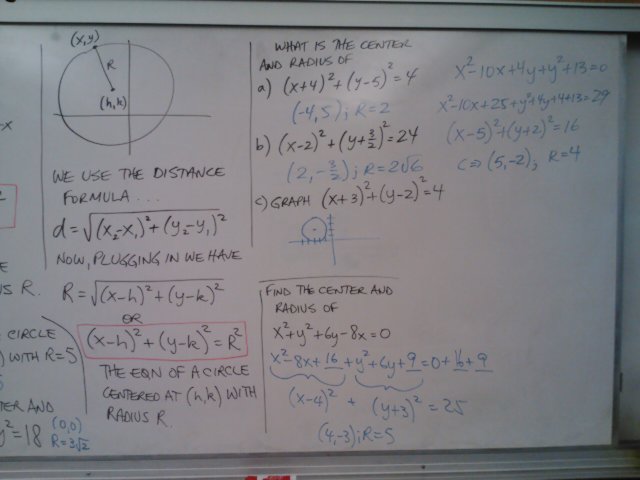 -x
S R.
CIRCLE
) WITH R=5
TER AND
y²=18 (0,0)
R=3√2
(x,y)
R
(h,k)
WE USE THE DISTANCE
FORMULA...
d=√(x₂-x₁)²+(y₂-y₁)²
NOW, PLUGGING IN WE HAVE
R=√(x-h)²+(y-k)²
OR
(x-h)²+(y-k)²=R²
THE EQN OF A CIRCLE
CENTERED AT (h,k) WITH
RADIUS R.
WHAT IS THE CENTER
AND RADIUS OF
a) (x+4)²+(y-5)²=4
(-4,5); R=2
b) (x-2)²+(y+3/2)²=24
(2,-3/2); R=2√6
c) GRAPH (x+3)²+(y-2)²=4
FIND THE CENTER AND
RADIUS OF
x²+y²+6y-8x=0
x²-8x+16+y²+6y+9=0+16+9
(x-4)² + (y+3)²=25
(4,-3); R=5
x²-10x+4y+y²+13=0
x²-10x+25+y²+4y+4+13=29
(x-5)²+(y+2)²=16
C⇒(5,-2); R=4